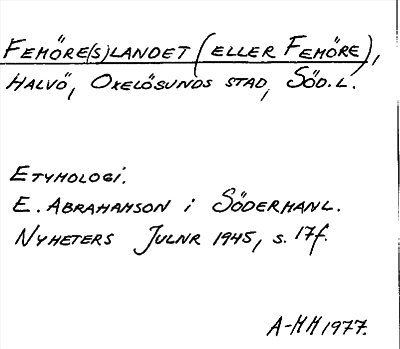 FEMÖRE(S)LANDET (ELLER FEMÖRE),
HALVÖ, OXELÖSUNDS STAD, SÖD.L.
ETYMOLOGI.
E. ABRAHAMSON i SÖDERMANL.
NYHETERS JULNR 1945, s. 17f.
A-MH 1977.